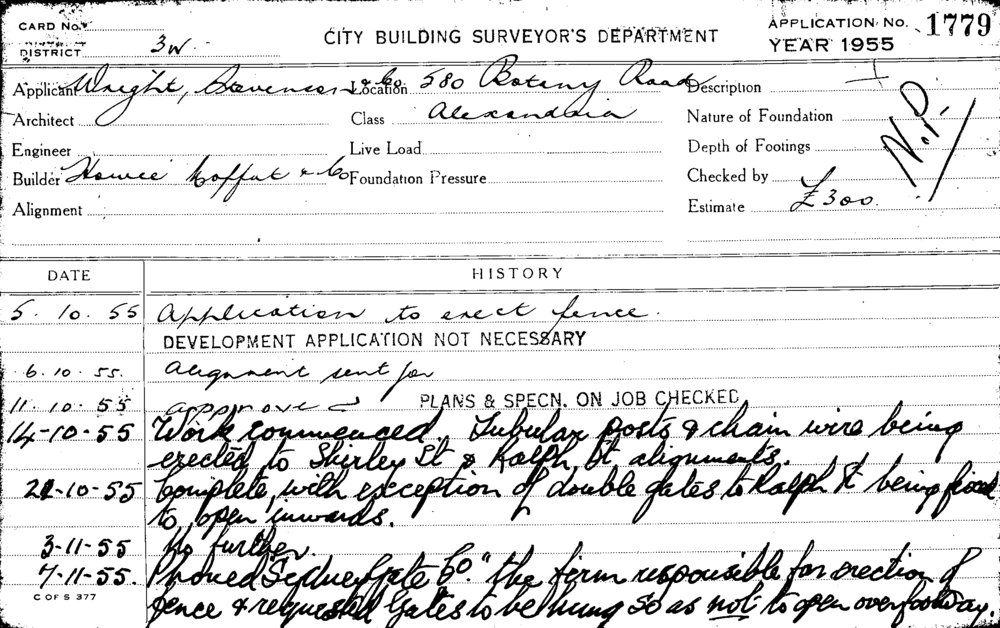 CARD No.
DISTRICT 3W
CITY BUILDING SURVEYOR'S DEPARTMENT
APPLICATION No. 1779
YEAR 1955
Applicant Wright, Stevenson & Co
Location 580 Botany Road
Alexandria
Description
Architect
Class
Nature of Foundation
Engineer
Live Load
Depth of Footings
Builder Howie Moffat & Co
Foundation Pressure
Checked by
Alignment
Estimate £300.
N.P.
DATE HISTORY
5.10.55 Application to erect fence.
DEVELOPMENT APPLICATION NOT NECESSARY
6.10.55. Alignment sent for
11.10.55 approved PLANS & SPECN. ON JOB CHECKED
14-10-55 Work commenced. Tubular posts & chain wire being
erected to Shirley St & Ralph St alignments.
21-10-55 Complete, with exception of double gates to Ralph St being fixed
to open inwards.
3-11-55 No further.
7-11-55. Phoned "Sydney Gate Co." the firm responsible for erection of
fence & requested gates to be hung so as not to open over footway.
C OF S 377